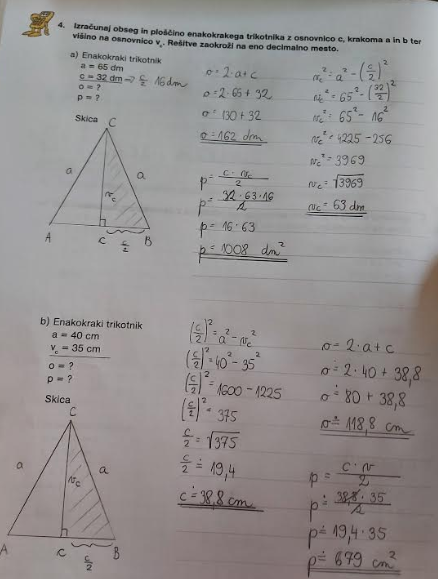 4. Izračunaj obseg in ploščino enakokrakega trikotnika z osnovnico c, krakoma a in b ter
višino na osnovnico v_c. Rešitve zaokroži na eno decimalno mesto.
a) Enakokraki trikotnik
a = 65 dm
c = 32 dm ⇒ c/2 16 dm
o = ?
p = ?
Skica
C
a
a
v_c
A
C
B
c/2
o = 2·a + c
o = 2·65 + 32
o = 130 + 32
o = 162 dm
p = c·v_c/2
p = 32·63·16/2
p = 16·63
p = 1008 dm²
v_c² = a² - (c/2)²
v_c² = 65² - (32/2)²
v_c² = 65² - 16²
v_c² = 4225 - 256
v_c² = 3969
v_c = √3969
v_c = 63 dm
b) Enakokraki trikotnik
a = 40 cm
v_c = 35 cm
o = ?
p = ?
Skica
C
a
a
v_c
A
C
B
c/2
(c/2)² = a² - v_c²
(c/2)² = 40² - 35²
(c/2)² = 1600 - 1225
(c/2)² = 375
c/2 = √375
c/2 ≐ 19,4
c ≐ 38,8 cm
o = 2·a + c
o ≐ 2·40 + 38,8
o ≐ 80 + 38,8
o ≐ 118,8 cm
p = c·v/2
p ≐ 38,8·35/2
p ≐ 19,4·35
p ≐ 679 cm²